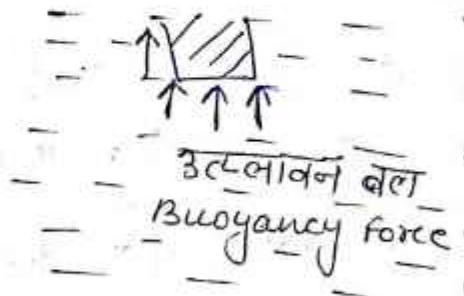 उत्प्लावन बल
Buoyancy force